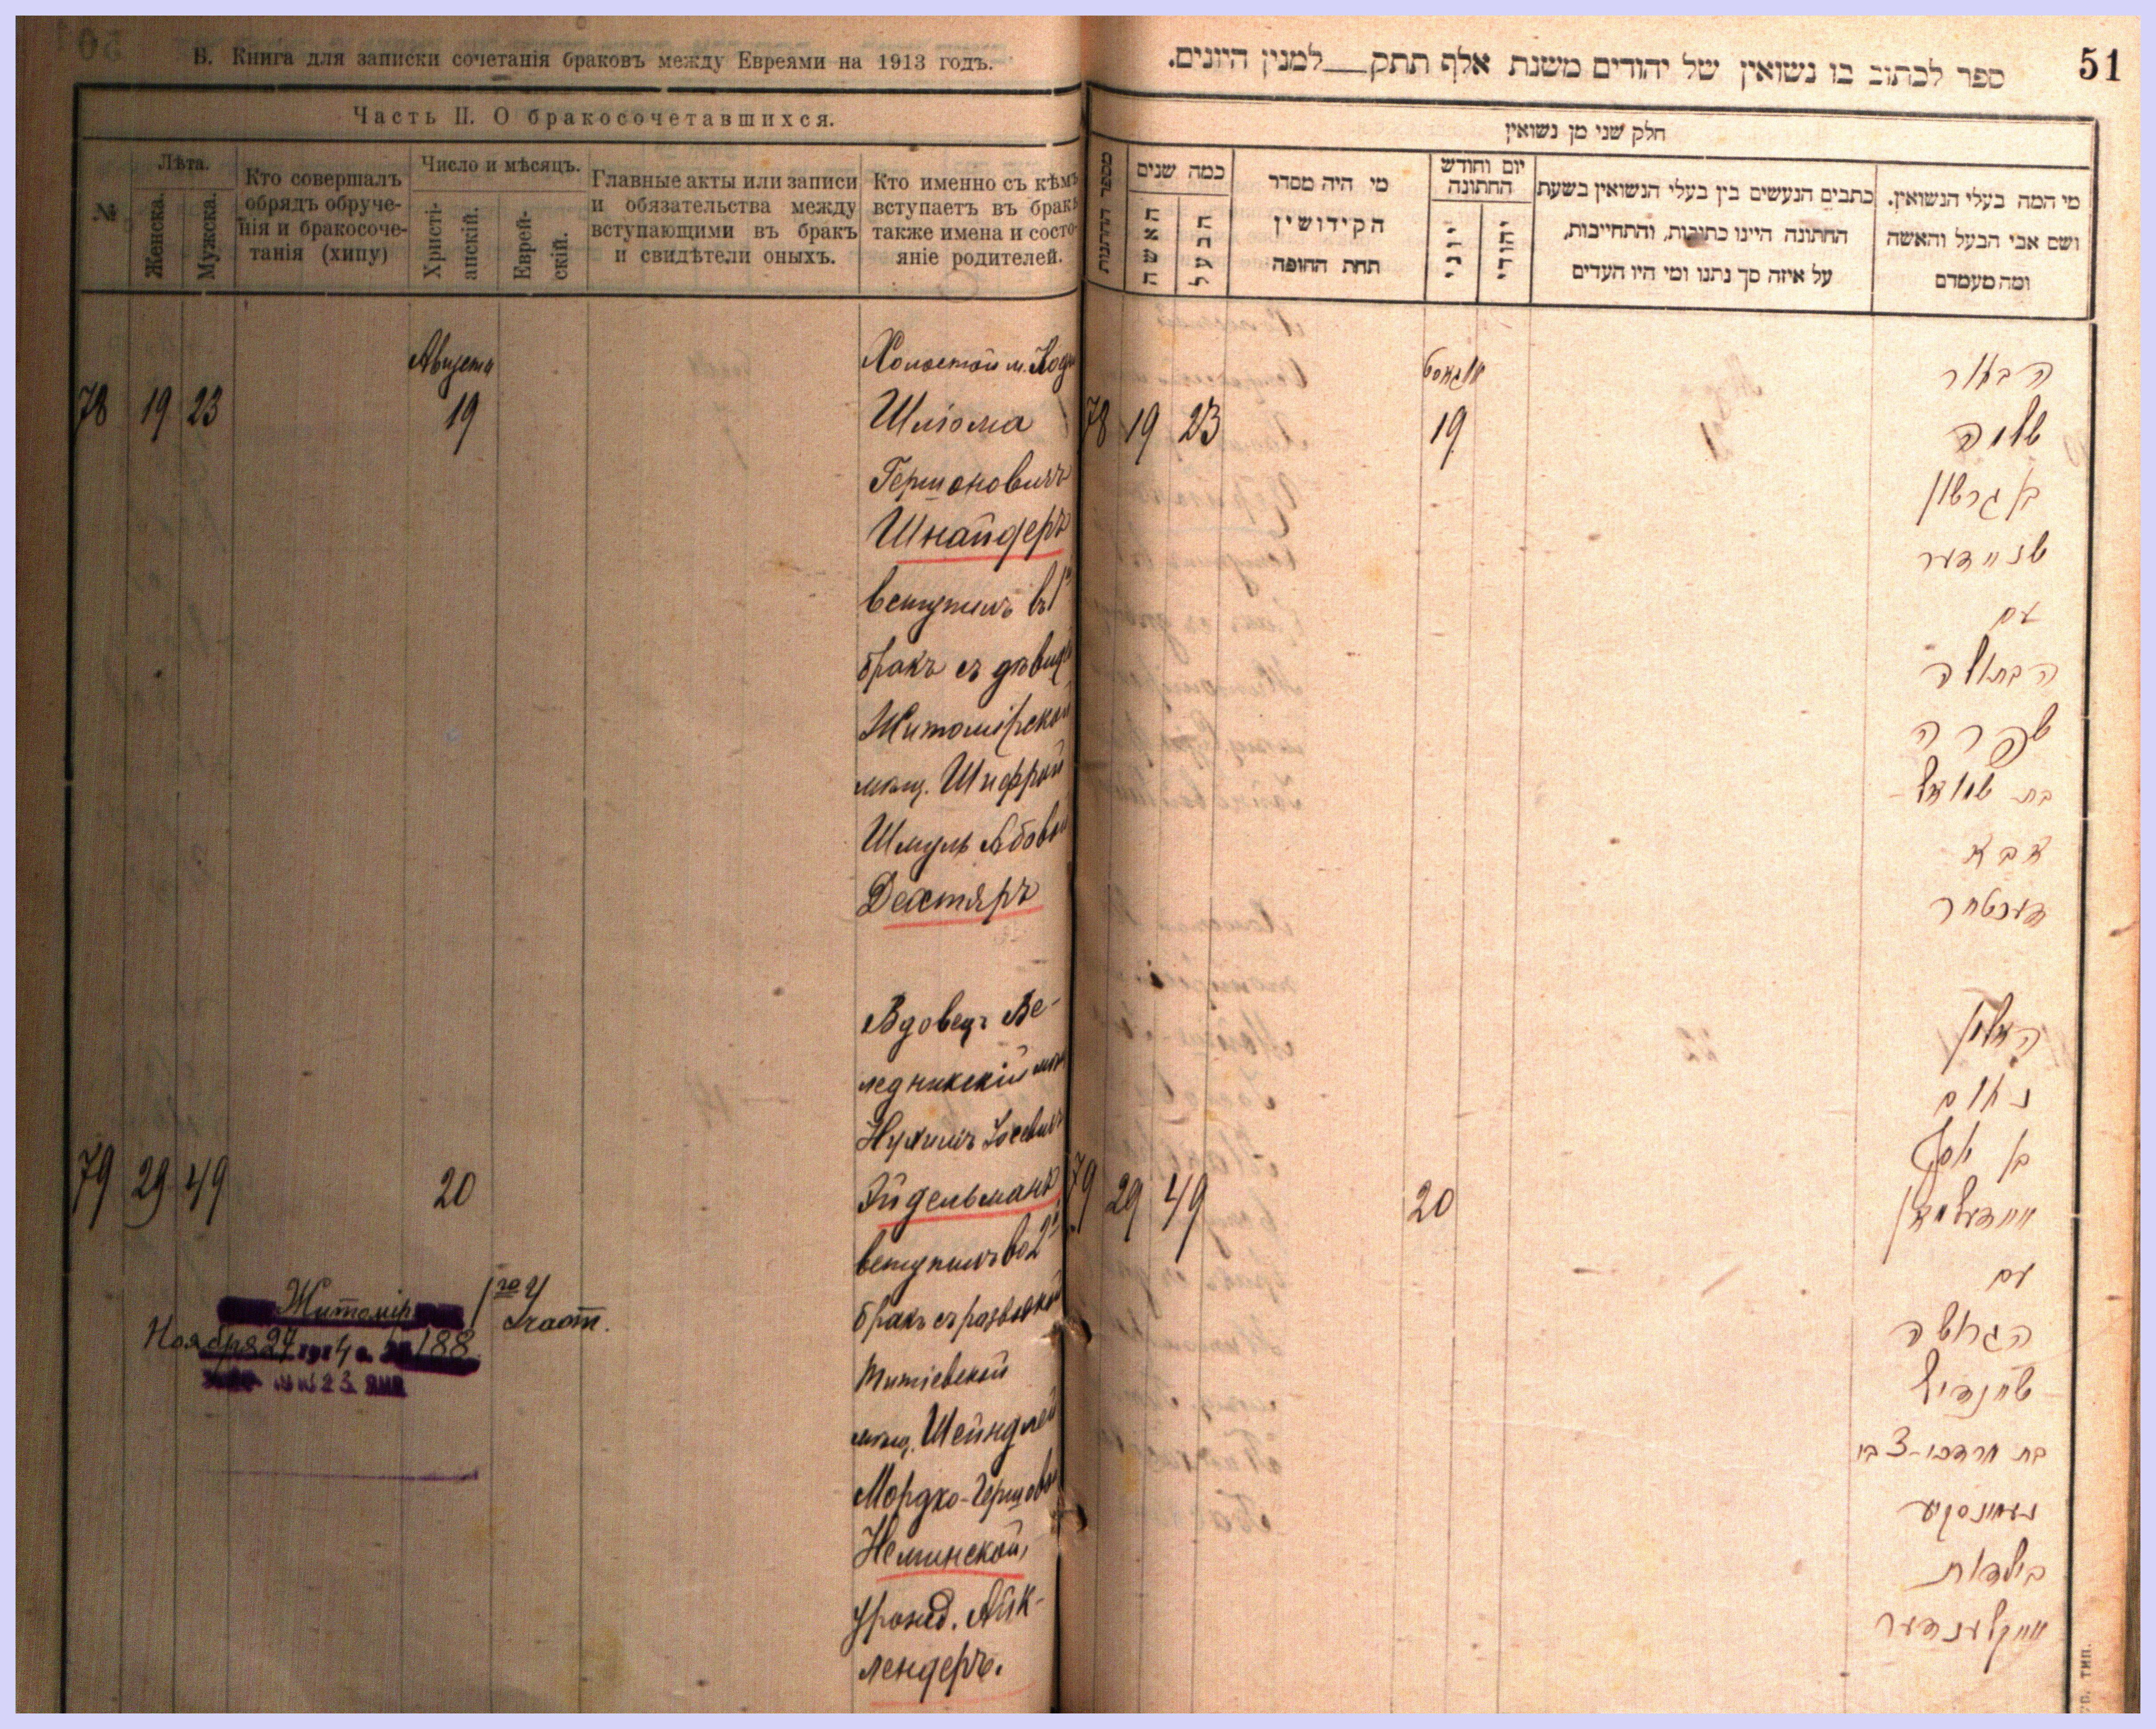 В. Книга для записки сочетанія браковъ между Евреями на 1913 годъ.
Часть II. О бракосочетавшихся.
№
Лѣта.
Женска.
Мужска.
Кто совершалъ
обрядъ обруче-
нія и бракосоче-
танія (хипу)
Число и мѣсяцъ.
Христі-
анскій.
Еврей-
скій.
Главные акты или записи
и обязательства между
вступающими въ бракъ
и свидѣтели оныхъ.
Кто именно съ кѣмъ
вступаетъ въ бракъ
также имена и состо-
яніе родителей.
Августа
78 19 23 19
Холостой м.
Шлiома
Гершоновичъ
Шнайдеръ
вступилъ въ 1й
бракъ съ дѣвицей
Житомірской
мѣщ. Шифрой
Шмуль Абовой
Дехтяръ
79 29 49 20
Вдовецъ Ве-
ледникскій мѣщ
Нухимъ
Эйдельманъ
вступилъ во 2й
бракъ съ разводкой
Титіевской
мѣщ. Шейндлей
Мордко-Гершовой
Неминской,
урожд. Айк-
лендеръ.
Житомір 1го Участ.
Ноября 27 1914 г. 188
ספר לכתוב בו נשואין של יהודים משנת אלף תתק__למנין היונים.
51
חלק שני מן נשואין
מספר החתונות
כמה שנים
האשה
הבעל
מי היה מסדר
הקידושין
תחת החופה
יום וחודש
החתונה
יוני
יהודי
כתבים הנעשים בין בעלי הנשואין בשעת
החתונה היינו כתובות, והתחייבות,
על איזה סך נתנו ומי היו העדים
מי המה בעלי הנשואין.
ושם אבי הבעל והאשה
ומה מעמדם
אוגוסט
78 19 23 19
הבחור
שלמה
בן גרשון
שניידער
עם
הבתולה
שפרה
בת שמואל
אבא
דעכטער
79 29 49 20
האלמן
נחום
בן יוסף
איידעלמאן
עם
הגרושה
שיינדיל
בת מרדכי-צבי
נעמינסקי
בילדות
אייקלענדער